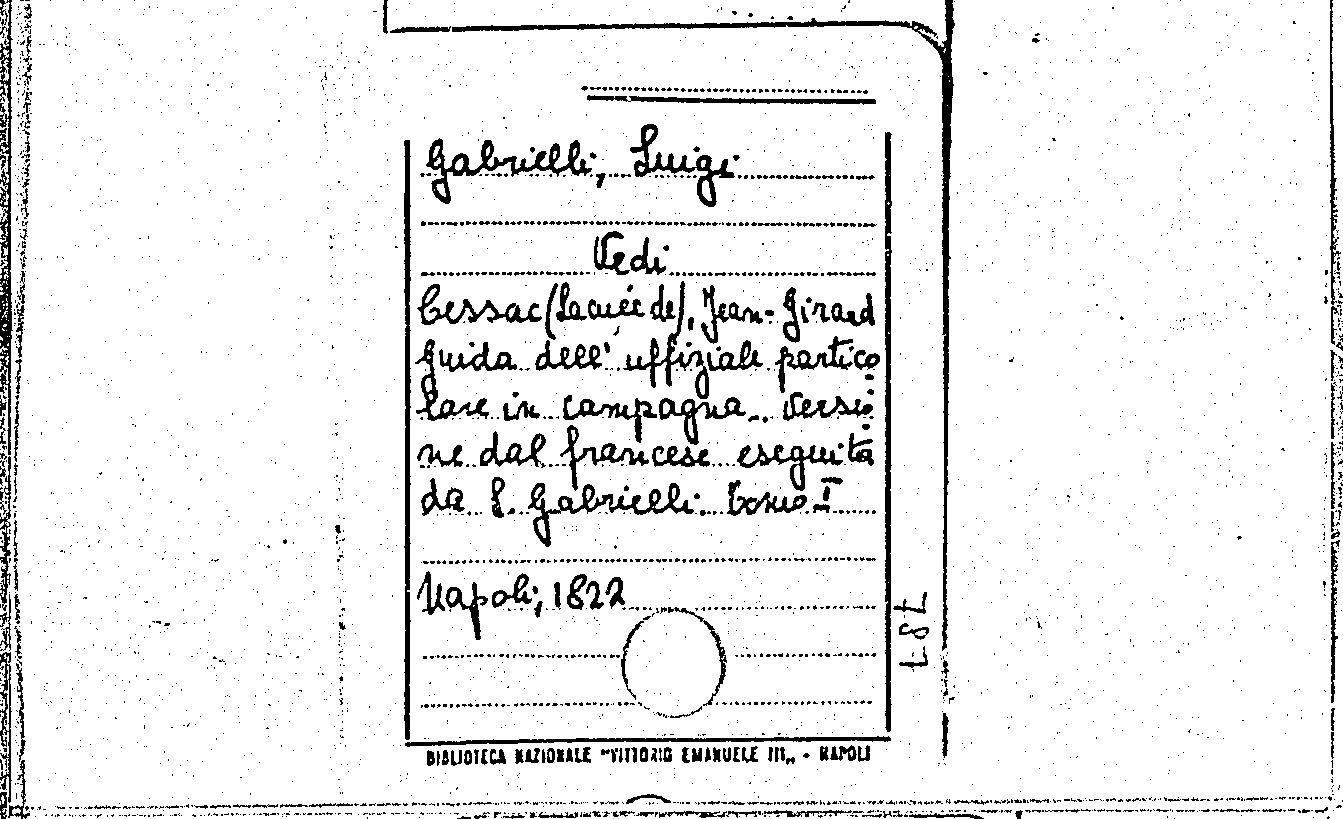 Gabrielli, Luigi
Vedi
Cessac (Lacuée de), Jean-Girard
Guida dell' uffiziale partico
lare in campagna. Versio
ne dal francese eseguita
da L. Gabrielli. Tomo I
Napoli, 1822
787
BIBLIOTECA NAZIONALE "VITTORIO EMANUELE III„ - NAPOLI